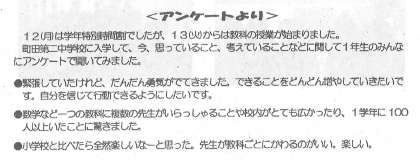 ＜アンケートより＞
１２(月)は学年特別時間割でしたが、１３(火)からは教科の授業が始まりました。
町田第二中学校に入学して、今、思っていること、考えていることなどに関して１年生のみんな
にアンケートで聞いてみました。
●緊張していたけれど、だんだん勇気がでてきました。できることをどんどん増やしていきたいで
す。自分を信じて行動できるようにしたいです。
●数学など一つの教科に複数の先生がいらっしゃることや校内がとても広かったり、１学年に１００
人以上いたことに驚きました。
●小学校と比べたら全然楽しいなーと思った。先生が教科ごとにかわるのがいい。楽しい。